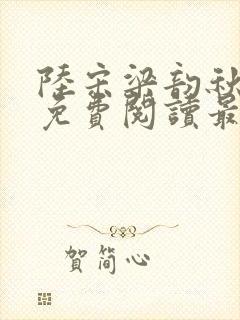 陸宗梁韵秋
免費閱讀最
賀簡心